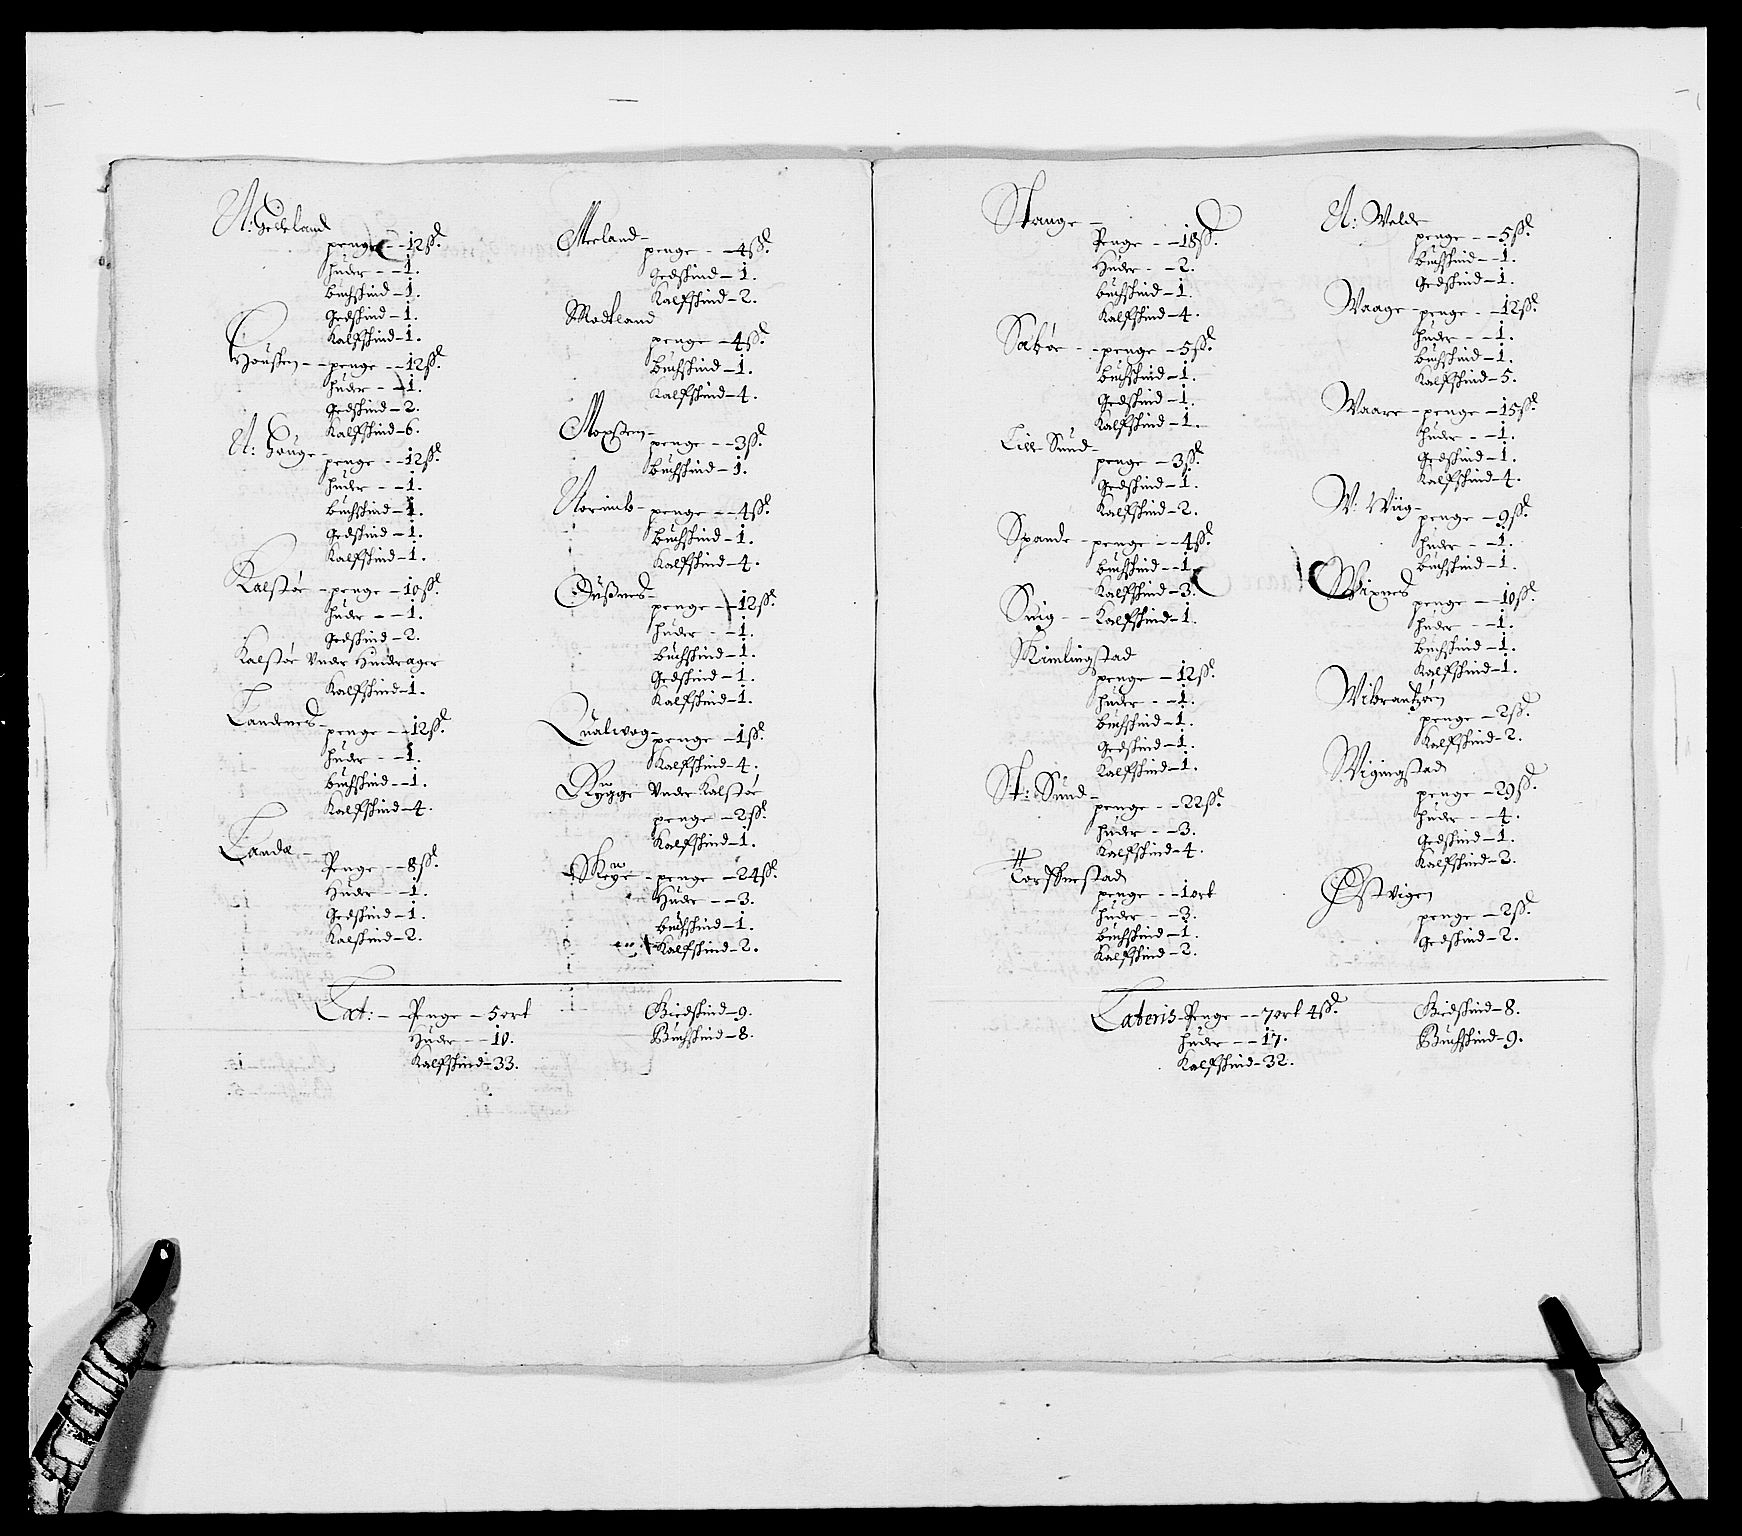 A: Hedeland
penge - - 12ß.
huder - - 1.
buchskind - 1.
gedskind - 1.
Kalfskind - 1.
Housken - - penge - - 12ß.
huder - - 1.
gedskind - 2.
Kalfskind - 6.
A: Houge -
penge - - 12ß.
huder - - 1.
buchskind - 1.
gedskind - 1.
Kalfskind - 1.
Kalstør - penge - 10ß.
huder - - 1.
gedskind - 2.
Kalstør Under Hindrager
Kalfskind - 1.
Landenes -
penge - - 12ß.
huder - - 1.
buchskind - - 1.
Kalfskind - 4.
Landa -
Penge - - 8ß.
Huder - - 1.
Gedskind - 1.
Kalfskind - 2.
Meeland -
penge - - 4ß.
Gedskind - 1.
Kalfskind - 2.
Modeland
penge - 4ß.
Buchskind - 1.
Kalfskind - 4.
penge - - 3ß.
Buchskind - 1.
penge - - 4ß.
Buchskind - 1.
Kalfskind - 4.
penge - - 12ß.
huder - - 1.
buchskind - 1.
Gedskind - 1.
Kalfskind - 1.
Qualvog -
penge - 1ß.
Kalfskind - 4.
Rygge Under Kalstør
penge - 2ß.
Kalfskind - 1.
penge - 24ß.
Hude - - 3.
buchskind - 1.
Kalfskind - 2.
Lat: - - Penge - 5 ort
Huder - - 10.
Kalfskind - 33.
Giedskind - 9.
Buchskind - 8.
Stange -
Penge - - 18ß.
Huder - - 2.
buchskind - 1.
Kalfskind - 4.
Sæbøe - - penge - 5ß.
buchskind - 1.
Gedskind - 1.
Kalfskind - 1.
Lille Sund -
penge - 3ß.
Gedskind - 1.
Kalfskind - 2.
Spande - penge - - 4ß.
buchskind - - 1.
Kalfskind - 3.
Suig - - Kalfskind - 1.
Kimlingstad
penge - 12ß.
huder - - 1.
buchskind - 1.
Gedskind - 1.
Kalfskind - 1.
St: Sund -
penge - - 22ß.
huder - - 3.
Kalfskind - 4.
Torffuestad
penge - - 1 ort
huder - - 3.
buchskind - 1.
Kalfskind - 2.
A: Welde
penge - - 5ß.
buchskind - - 1.
Gedskind - 1.
Waage - penge - - 12ß.
huder - - 1.
buchskind - 1.
Kalfskind - 5.
Waare - penge - 15ß.
huder - - 1.
Gedskind - 1.
Kalfskind - 4.
W: Wiig -
penge - 9ß.
huder - - 1.
buchskind - 1.
Wixnes
penge - - 10ß.
huder - - 1.
buchskind - 1.
Kalfskind - 1.
Wibrantzøen
penge - 2ß.
Kalfskind - 2.
Wigingstad
penge - 29ß.
huder - - 4.
Gedskind - 1.
Kalfskind - 2.
Østvigen
penge - 2ß.
Gedskind - 2.
Lateris - Penge - - 7 ort 4ß.
huder - - 17.
Kalfskind - 32.
Giedskind - 8.
Buchskind - 9.